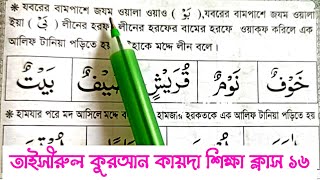 * যবরের বামপাশে জযম ওয়ালা ওয়াও (بَوْ) ,যবরের বামপাশে জযম ওয়ালা
ইয়া (بَيْ) লীনের হরফ লীনের হরফের বামের হরফে ওয়াকফ করিলে এক
আলিফ টানিয়া পড়িতে হাকে মদ্দে লীন বলে।
خَوْفٌ نَوْمٌ قُرَيْشٍ صَيْفٌ بَيْتٌ
* হামযার পরে মদ আসিলে মদ্দে হামজার হরকতকে এক আলিফ টানিয়া পড়িতে হয়
তাইসীরুল কুরআন কায়দা শিক্ষা ক্লাস ১৬